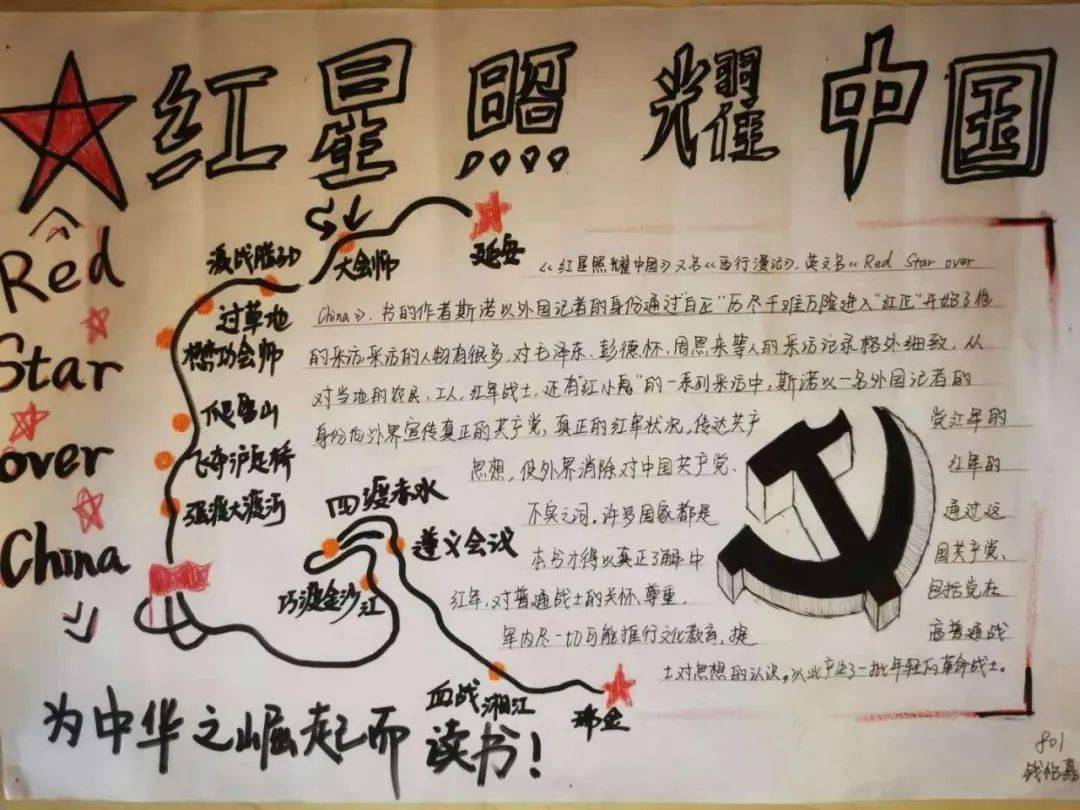 红星照耀中国
《Red
Star
over
China》
延安
大会师
激战腊子口
过草地
懋功会师
爬雪山
飞夺泸定桥
强渡大渡河
四渡赤水
遵义会议
巧渡金沙江
血战湘江
瑞金
《红星照耀中国》又名《西行漫记》，英文名《Red Star over
China》，书的作者斯诺以外国记者的身份通过"白区"历尽千难万险进入"红区"开始了他
的采访采访的人物有很多，对毛泽东、彭德怀、周恩来等人的采访记录格外细致，从
对当地的农民、工人、红军战士，还有"红小鬼"的一系列采访中，斯诺以一名外国记者的
身份向外界宣传真正的共产党、真正的红军状况，传达共产 党红军的
思想，使外界消除对中国共产党、 红军的
不实之词，许多国家都是 通过这
本书才得以真正了解中 国共产党、
红军，对普通战士的关怀、尊重， 包括党在
军内尽一切可能推行文化教育，提 高普通战
士对思想的认识，以此产生了一批年轻的革命战士。
为中华之崛起而读书！
801